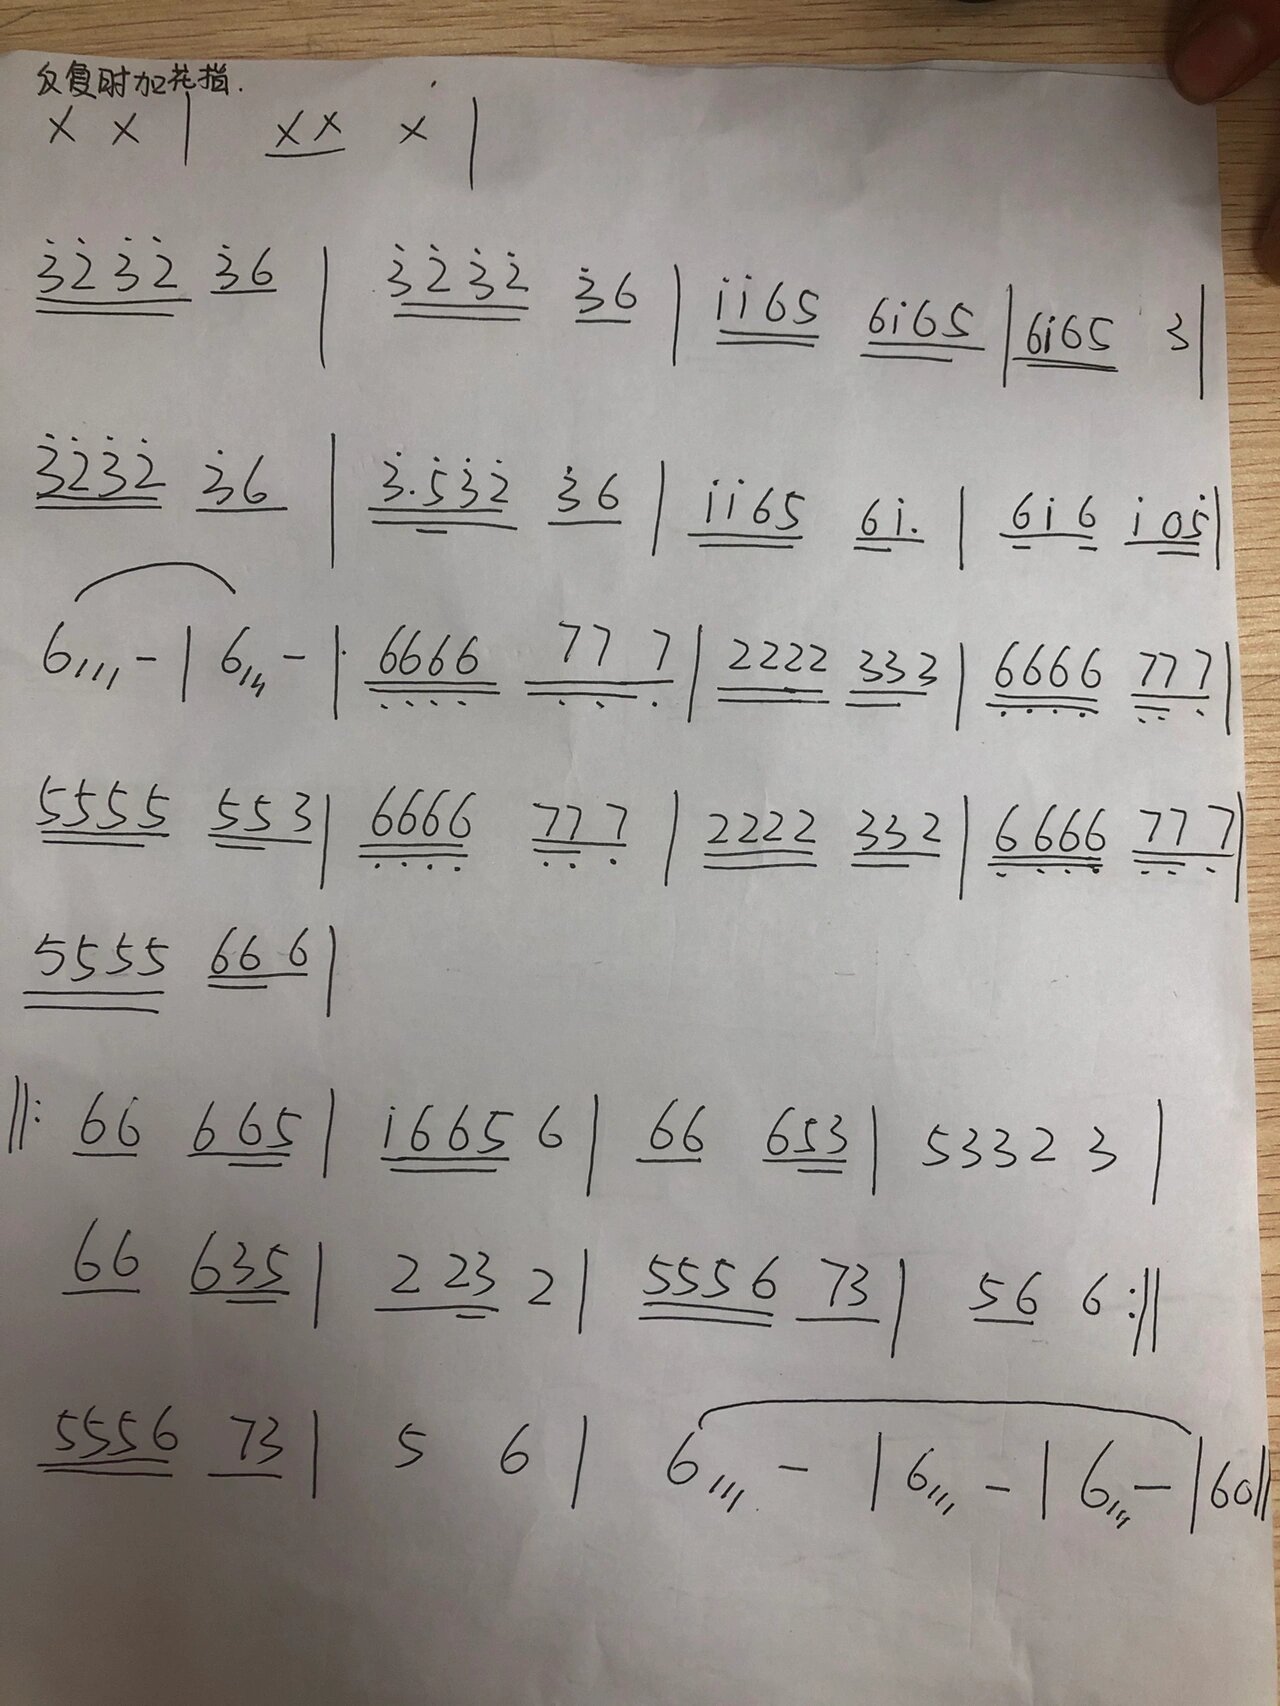 反复时加花指.
X X | X X X |
3̇2̇3̇2̇ 3̇6 | 3̇2̇3̇2̇ 3̇6 | i i 6 5 6i65 | 6i65 3 |
3̇2̇3̇2̇ 3̇6 | 3̇.5̇3̇2̇ 3̇6 | i i 6 5 6i. | 6i6 i05̇ |
6,,, - | 6,,, - | 6̣6̣6̣6̣ 7̣7̣ 7̣ | 2222 333 | 6̣6̣6̣6̣ 7̣7̣ 7̣ |
5555 553 | 6̣6̣6̣6̣ 7̣7̣ 7̣ | 2222 332 | 6̣6̣6̣6̣ 7̣7̣ 7̣ |
5555 66 6 |
||: 66 665 | i665 6 | 66 653 | 5332 3 |
66 635 | 2 23 2 | 5556 73 | 56 6 :||
5556 73 | 5 6 | 6,,, - | 6,,, - | 6,,, - | 60 ||